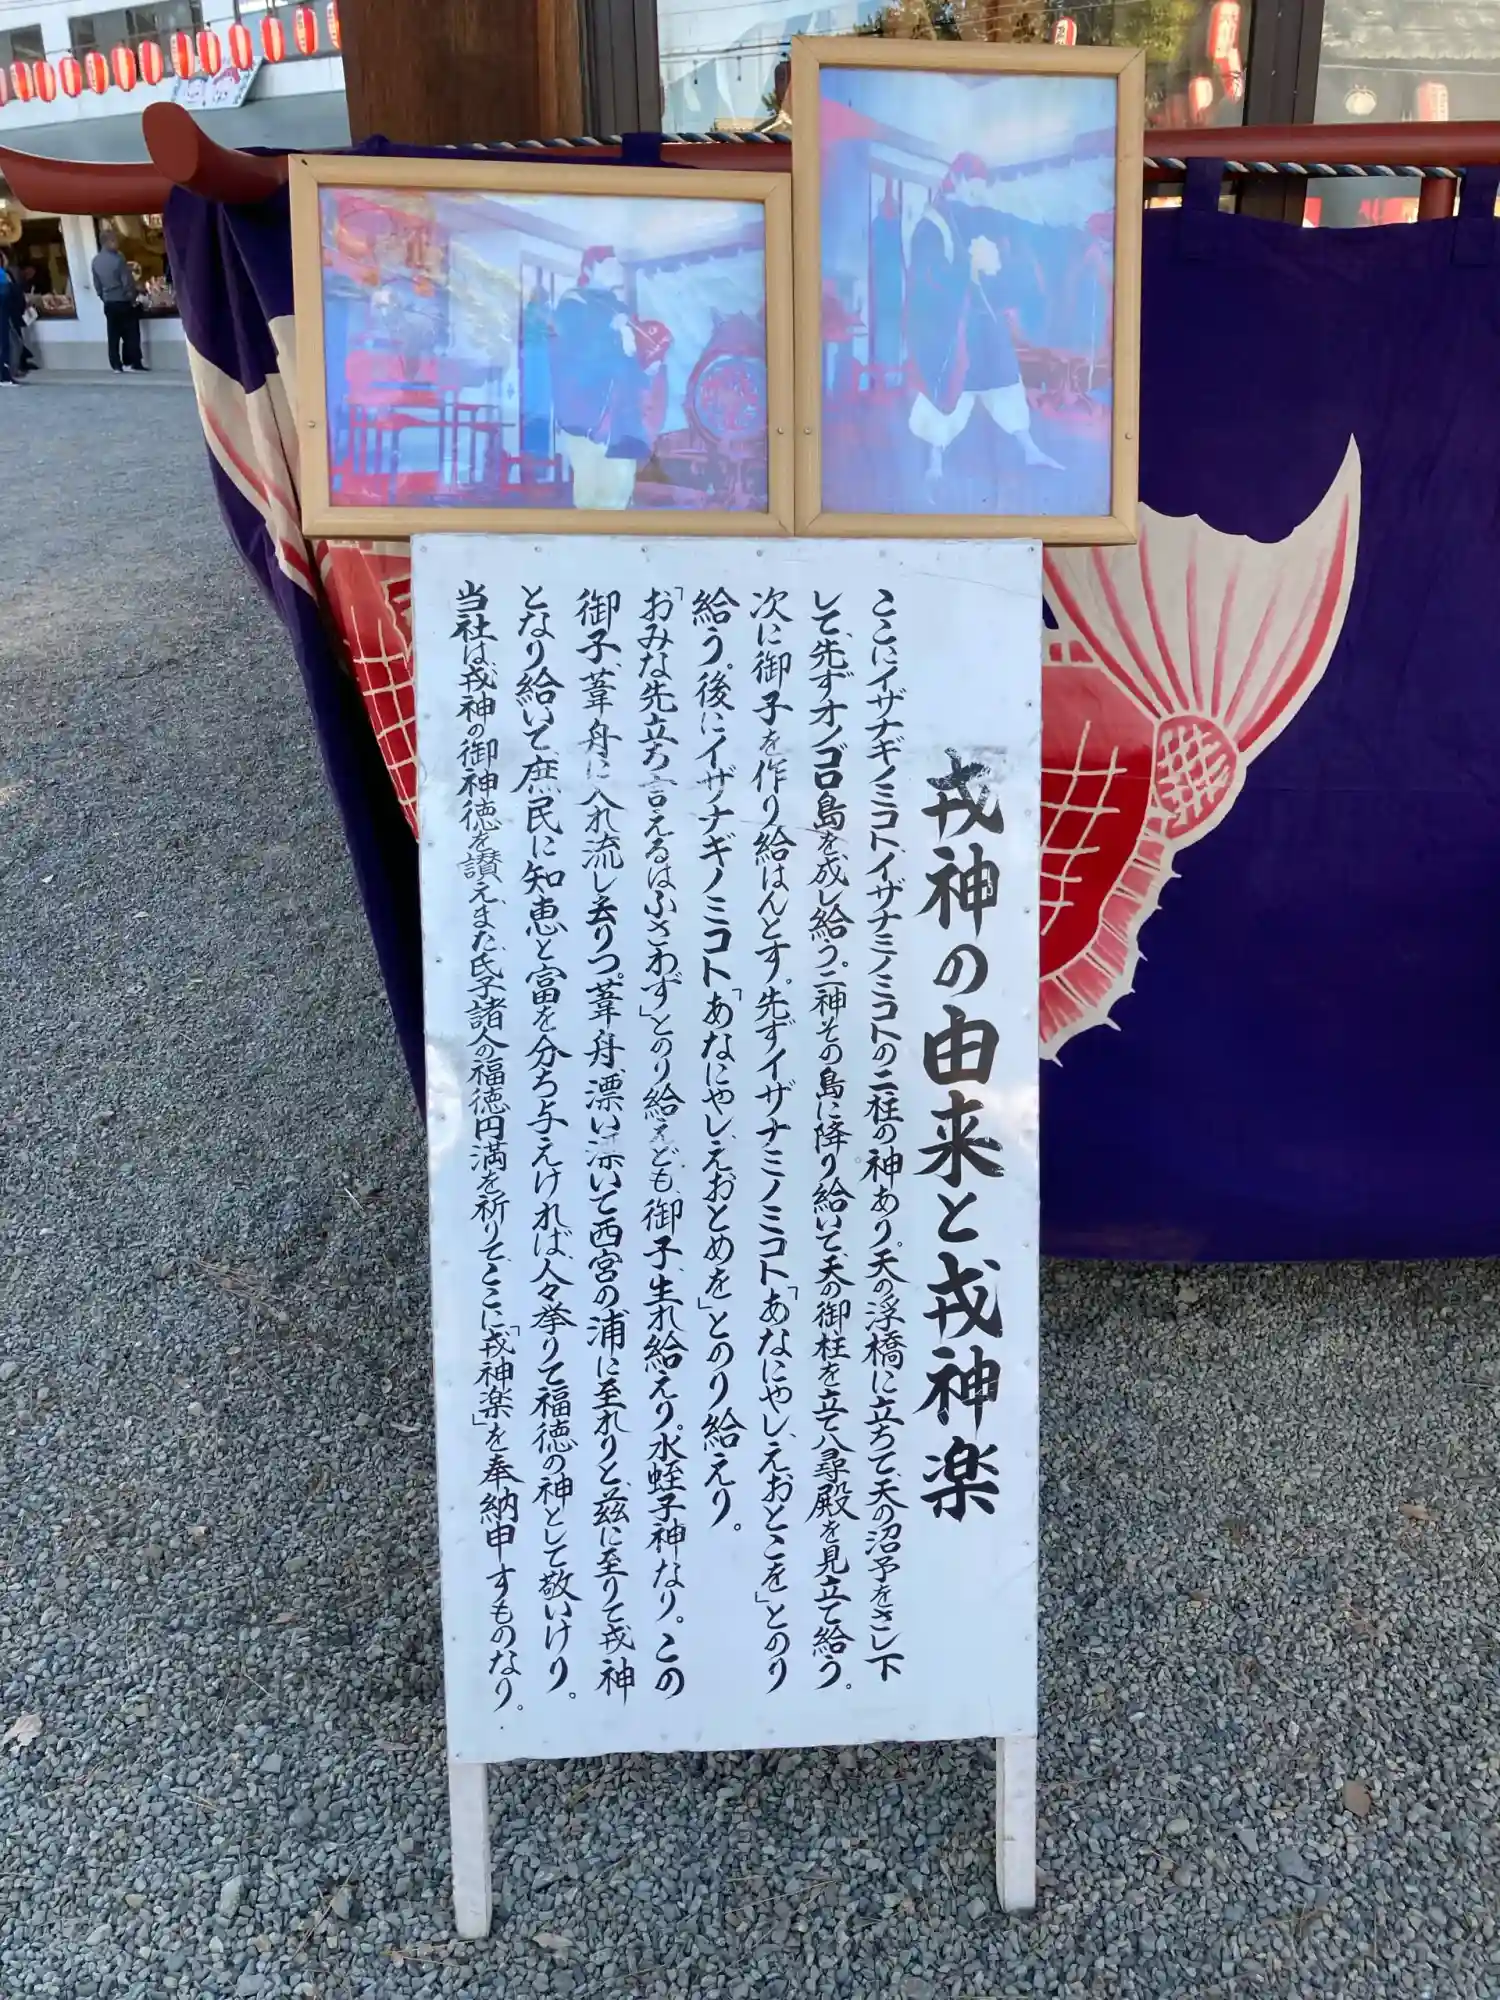 戎神の由来と戎神楽
ここにイザナギノミコト、イザナミノミコトの二柱の神あり。天の浮橋に立ちて、天の沼予をさし下
して、先ずオノゴロ島を成し給う。二神その島に降り給いて、天の御柱を立て八尋殿を見立て給う。
次に御子を作り給はんとす。先ずイザナミノミコト「あなにやし、えおとこを」とのり
給う。後にイザナギノミコト「あなにやし、えおとめを」とのり給えり。
「おみな先立ち言えるはふさわず」とのり給えども、御子、生れ給えり。水蛭子神なり。この
御子、葦舟に入れ流し去りつ。葦舟、漂い漂いて西宮の浦に至れりと。茲に至りて戎神
となり給いて、庶民に知恵と富を分ち与えければ、人々挙りて福徳の神として敬いけり。
当社は、戎神の御神徳を讃え、また、氏子諸人の福徳円満を祈りて、ここに「戎神楽」を奉納申すものなり。